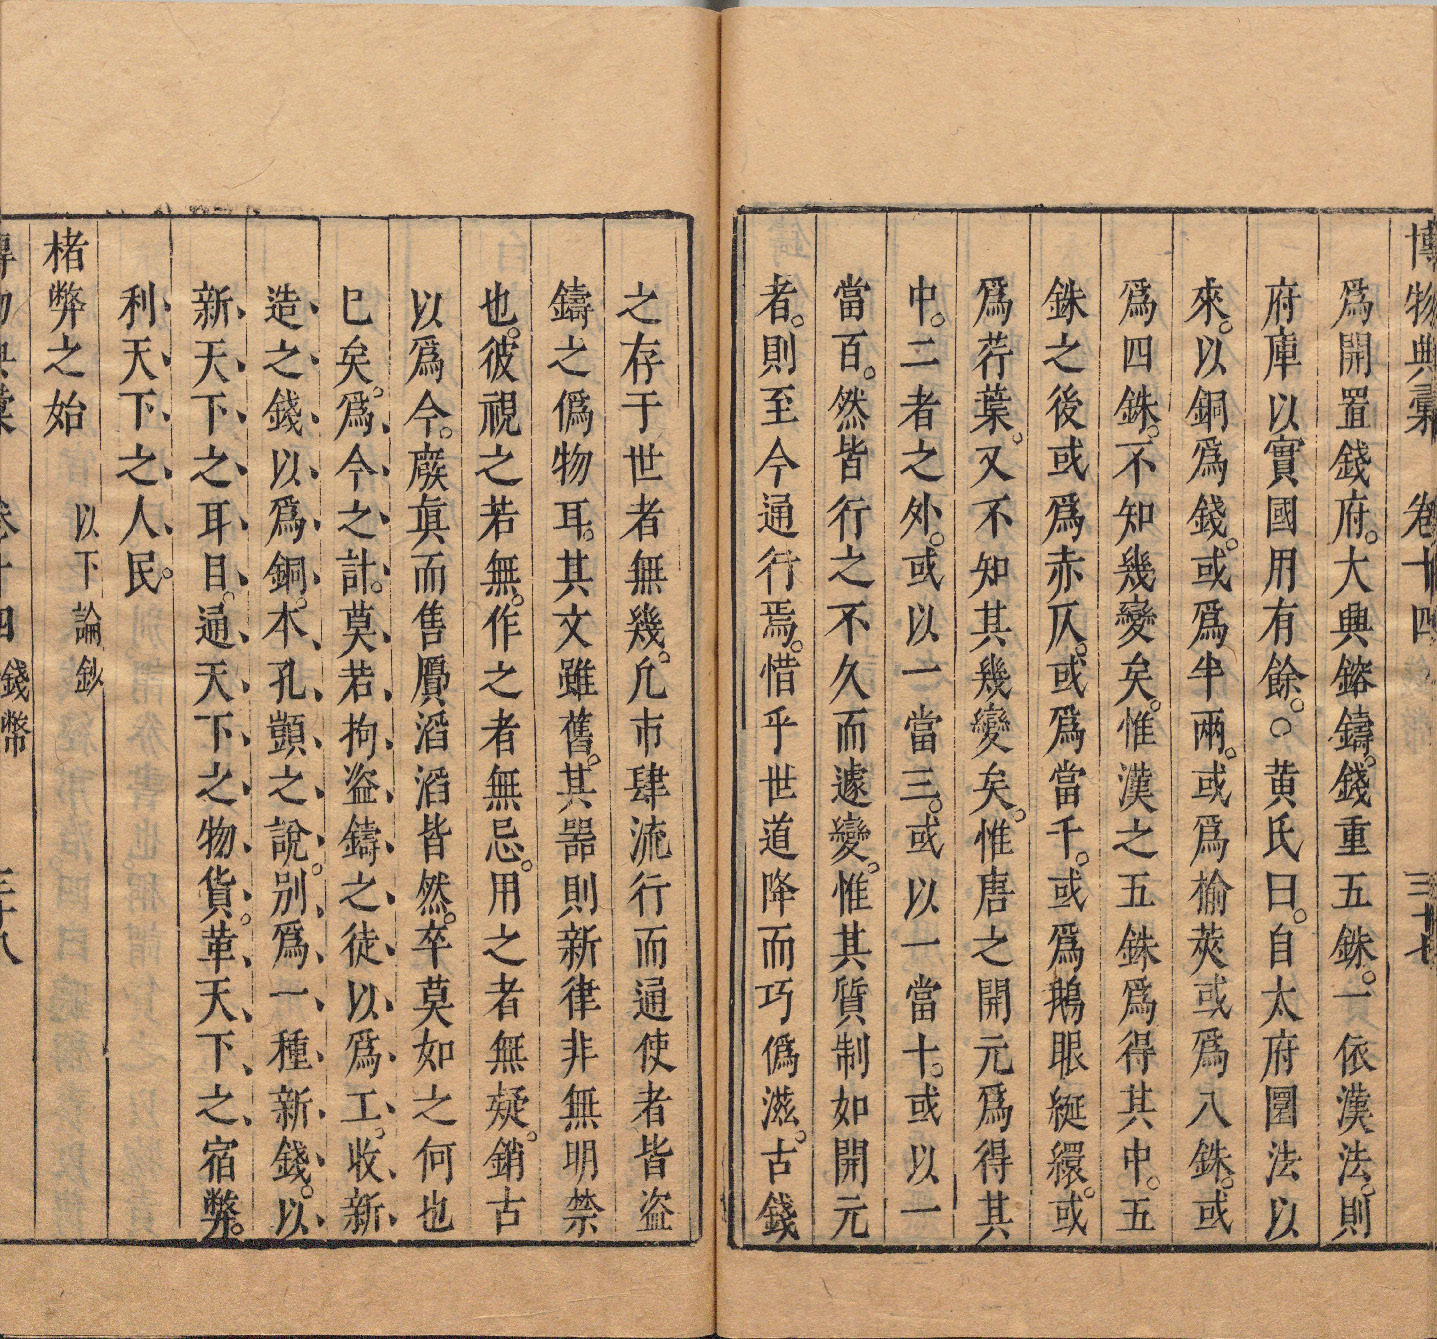 博物典彙 卷十四 三十七
爲開置錢府。大興鎔鑄。錢重五銖。一依漢法。則
府庫以實國用有餘。○黃氏曰。自太府圜法以
來。以銅爲錢。或爲半兩。或爲榆莢或爲八銖。或
爲四銖。不知幾變矣。惟漢之五銖爲得其中。五
銖之後或爲赤仄。或爲當千。或爲鵝眼綖繯。或
爲荇葉。又不知其幾變矣。惟唐之開元爲得其
中。二者之外。或以一當三。或以一當十。或以一
當百。然皆行之不久而遽變。惟其質制如開元
者。則至今通行焉。惜乎世道降而巧僞滋。古錢
之存于世者無幾。凢市肆流行而通使者皆盜
鑄之僞物耳。其文雖舊。其器則新律非無明禁
也。彼視之若無。作之者無忌。用之者無疑。銷古
以爲今。廢眞而售贗滔滔皆然。卒莫如之何也
巳矣。爲今之計。莫若拘盜鑄之徒以爲工。收新
造之錢以爲銅。本孔顗之說。别爲一種新錢。以
新天下之耳目。通天下之物貨。革天下之宿弊。
利天下之人民。
楮弊之始 以下論鈔
博物典彙 卷十四 錢幣 三十八